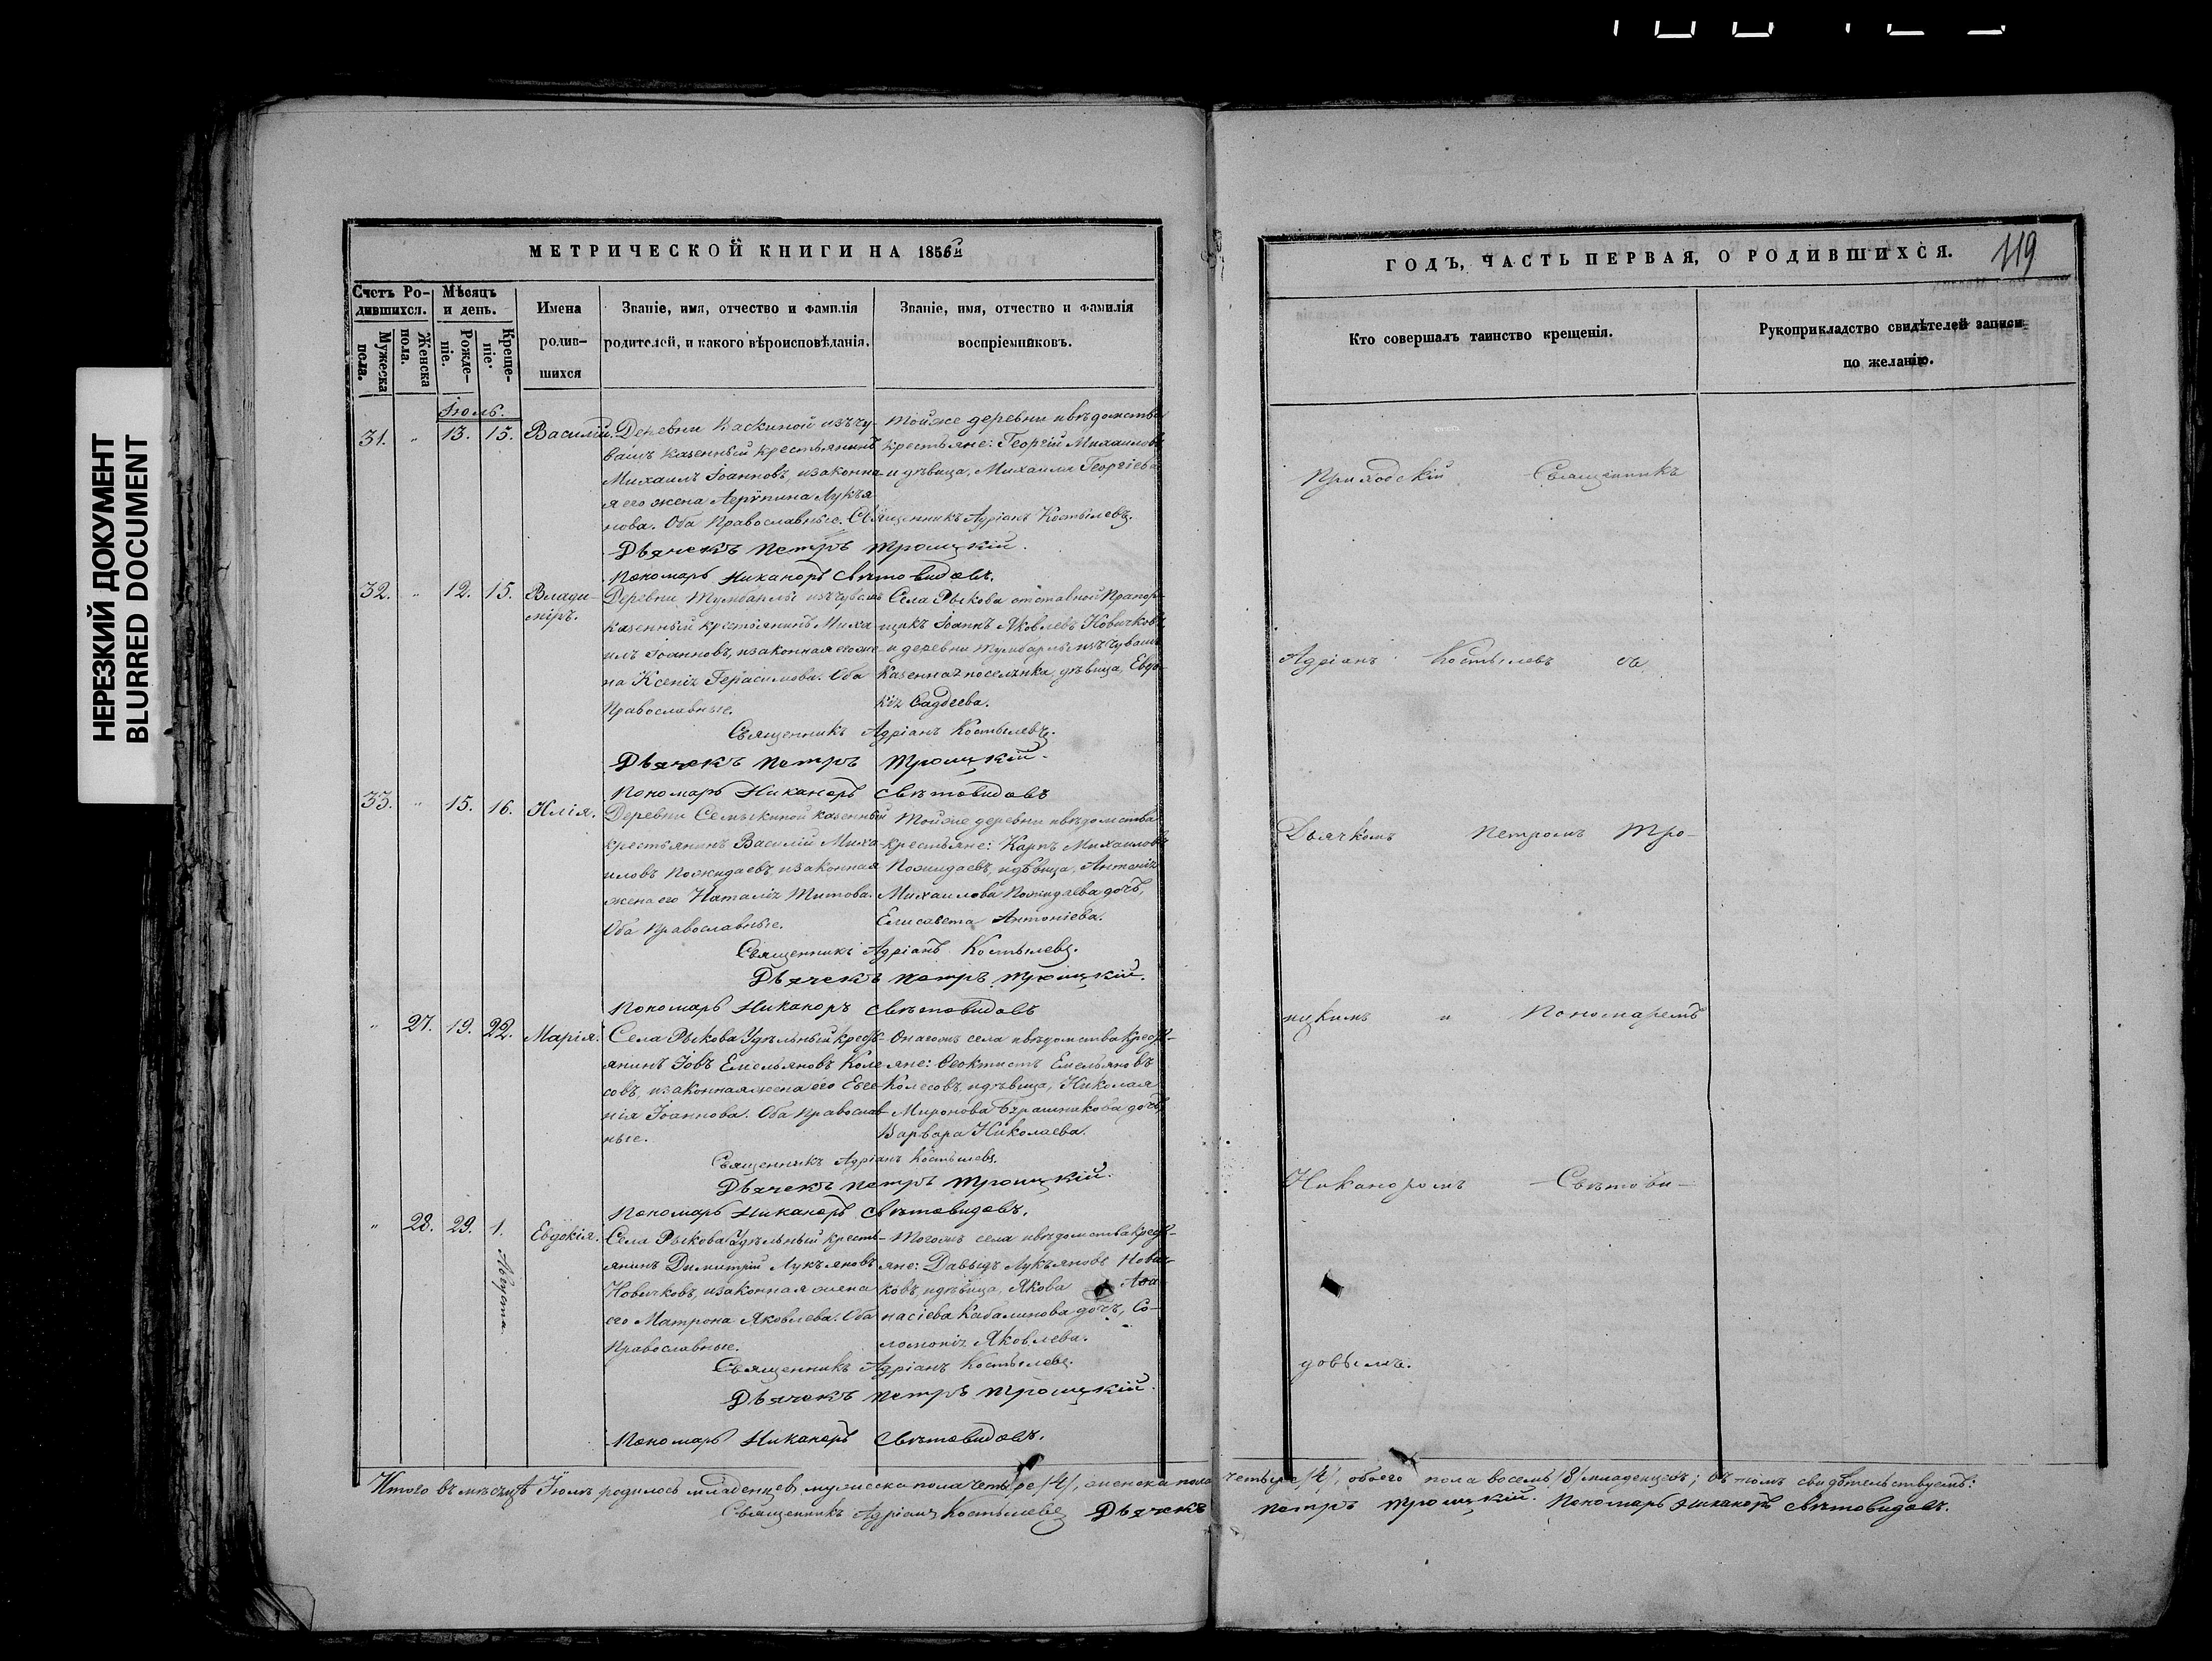 НЕРЕЗКИЙ ДОКУМЕНТ
BLURRED DOCUMENT
МЕТРИЧЕСКОЙ КНИГИ НА 1856й
Счетъ Родившихся.
Мужеска пола.
Женска пола.
Мѣсяцъ и день.
Рожденіе.
Крещеніе.
Имена родившихся
Званіе, имя, отчество и фамилія
родителей, и какого вѣроисповѣданія.
Званіе, имя, отчество и фамилія
воспріемниковъ.
Іюль.
31. " 13. 15. Василій.
Деревни Васкиной изъ чу-
вашъ казенный крестьянинъ
Михаилъ Іоанновъ, и законна-
я его жена Агрипина Лукья
нова. Оба Православные.
Тойже деревни и вѣдомства
крестьяне: Георгій Михаиловъ
и дѣвица, Михаила Георгіева
Священникъ Адріанъ Костылевъ.
Дьячекъ Петръ Троицкій.
Пономарь Никаноръ Свѣтовидовъ.
32. " 12. 15. Влади-
міръ.
Деревни Тумбарлы изъ чувашъ
казенный крестьянинъ Миха-
илъ Іоанновъ, и законная его же-
на Ксенія Герасимова. Оба
Православные.
Села Рыкова отставной Прапор-
щикъ Іоаннъ Яковлевъ Новичковъ,
и деревни Тумбарлы изъ чувашъ
казенная поселянка, дѣвица, Евдо-
кія Фадѣева.
Священникъ Адріанъ Костылевъ.
Дьячекъ Петръ Троицкій.
Пономарь Никаноръ Свѣтовидовъ
33. " 15. 16. Илія.
Деревни Семыкиной казенный
крестьянинъ Василій Миха-
иловъ Пожидаевъ, и законная
жена его Наталія Титова.
Оба Православные.
Тойже деревни и вѣдомства
крестьяне: Карпъ Михаиловъ
Пожидаевъ, и дѣвица, Антонія
Михаилова Пожидаева дочь,
Елисавета Антоніева.
Священникъ Адріанъ Костылевъ.
Дьячекъ Петръ Троицкій.
Пономарь Никаноръ Свѣтовидовъ
" 27. 19. 22. Марія.
Села Рыкова Удѣльный крестьянинъ
Іовъ Емельяновъ Коле
совъ, и законная жена его Евге
нія Іоаннова. Оба Православ
ные.
села и вѣдомства
крестьяне: Феоктистъ Емельяновъ
Колесовъ, и дѣвица, Николая
Миронова дочь,
Варвара Николаева.
Священникъ Адріанъ Костылевъ.
Дьячекъ Петръ Троицкій.
Пономарь Никаноръ Свѣтовидовъ.
" 28. 29. 1. Августа. Евдокія.
Села Рыкова Удѣльный кресть-
янинъ Димитрій Лукьяновъ
Новичковъ, и законная жена
его Матрона Яковлева. Оба
Православные.
Тогожъ села и вѣдомства
крестьяне: Давыдъ Лукьяновъ Нович-
ковъ, и дѣвица, Якова Афа
насіева Кабалинова дочь, Со-
ломонія Яковлева.
Священникъ Адріанъ Костылевъ.
Дьячекъ Петръ Троицкій.
Пономарь Никаноръ Свѣтовидовъ.
ГОДЪ, ЧАСТЬ ПЕРВАЯ, О РОДИВШИХСЯ.
119
Кто совершалъ таинство крещенія.
Рукоприкладство свидѣтелей записи
по желанію.
Приходскій Священникъ
Адріанъ Костылевъ съ
Дьячкомъ Петромъ Тро-
ицкимъ и Пономаремъ
Никаноромъ Свѣтови-
довымъ.
Итого въ мѣсяцѣ Іюлѣ родилось младенцевъ мужеска пола четыре /4/, женска пола четыре /4/, обоего пола восемь /8/ младенцевъ; въ томъ свидѣтельствуемъ:
Священникъ Адріанъ Костылевъ Дьячекъ Петръ Троицкій. Пономарь Никаноръ Свѣтовидовъ.